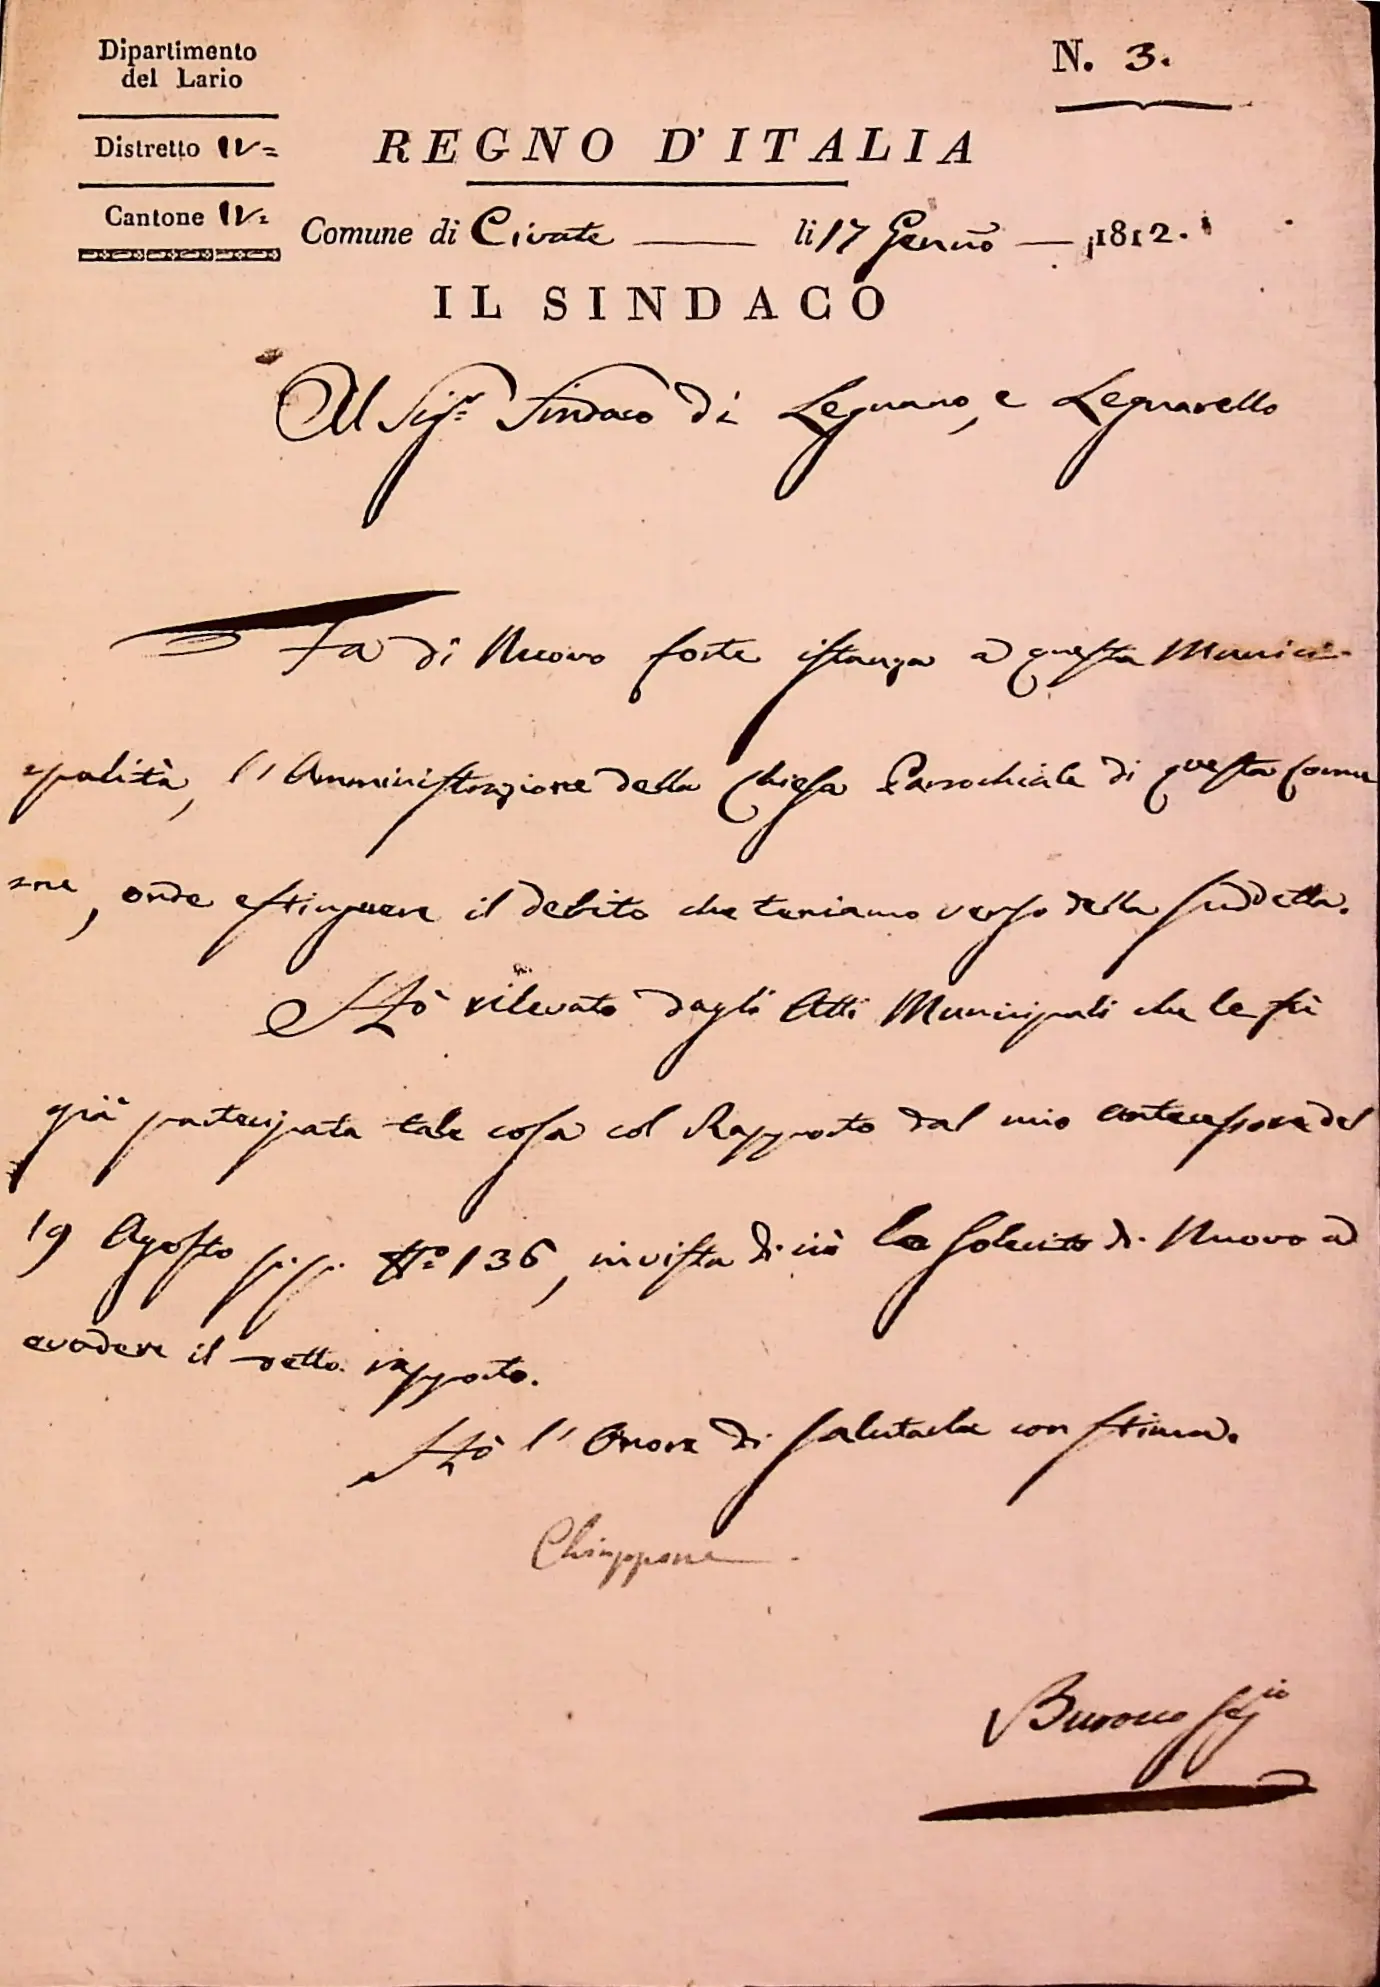 Dipartimento
del Lario
N. 3.
Distretto IV=
REGNO D'ITALIA
Cantone IV=
Comune di Civate li 17 Gennō 1812.
IL SINDACO
Al Sigr. Sindaco di Legnano, e Legnarello
Fa di Nuovo forte istanza a questa Munici-
palità, l'Amministrazione della Chiesa Parrochiale di questa Comu
ne, onde estinguere il debito che teniamo verso della suddetta.
Hò rilevato dagli Atti Municipali che le fù
già partecipata tale cosa col Rapporto dal mio antecessore del
19 Agosto p.p. No. 136, in vista di ciò la solecito di Nuovo ad
evadere il detto rapporto.
Hò l'Onore di salutarla con stima.
Chiappone
Segio